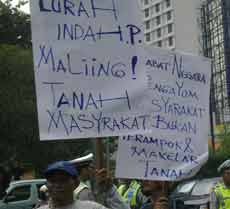 LURAH
INDAH.P.
MALIING!
TANAH
MASYRAKAT.
ABAT NEGGARA
NGAYOM
SYARAKAT
BUKAN
RAMPOK &
MAKELAR
TANAH